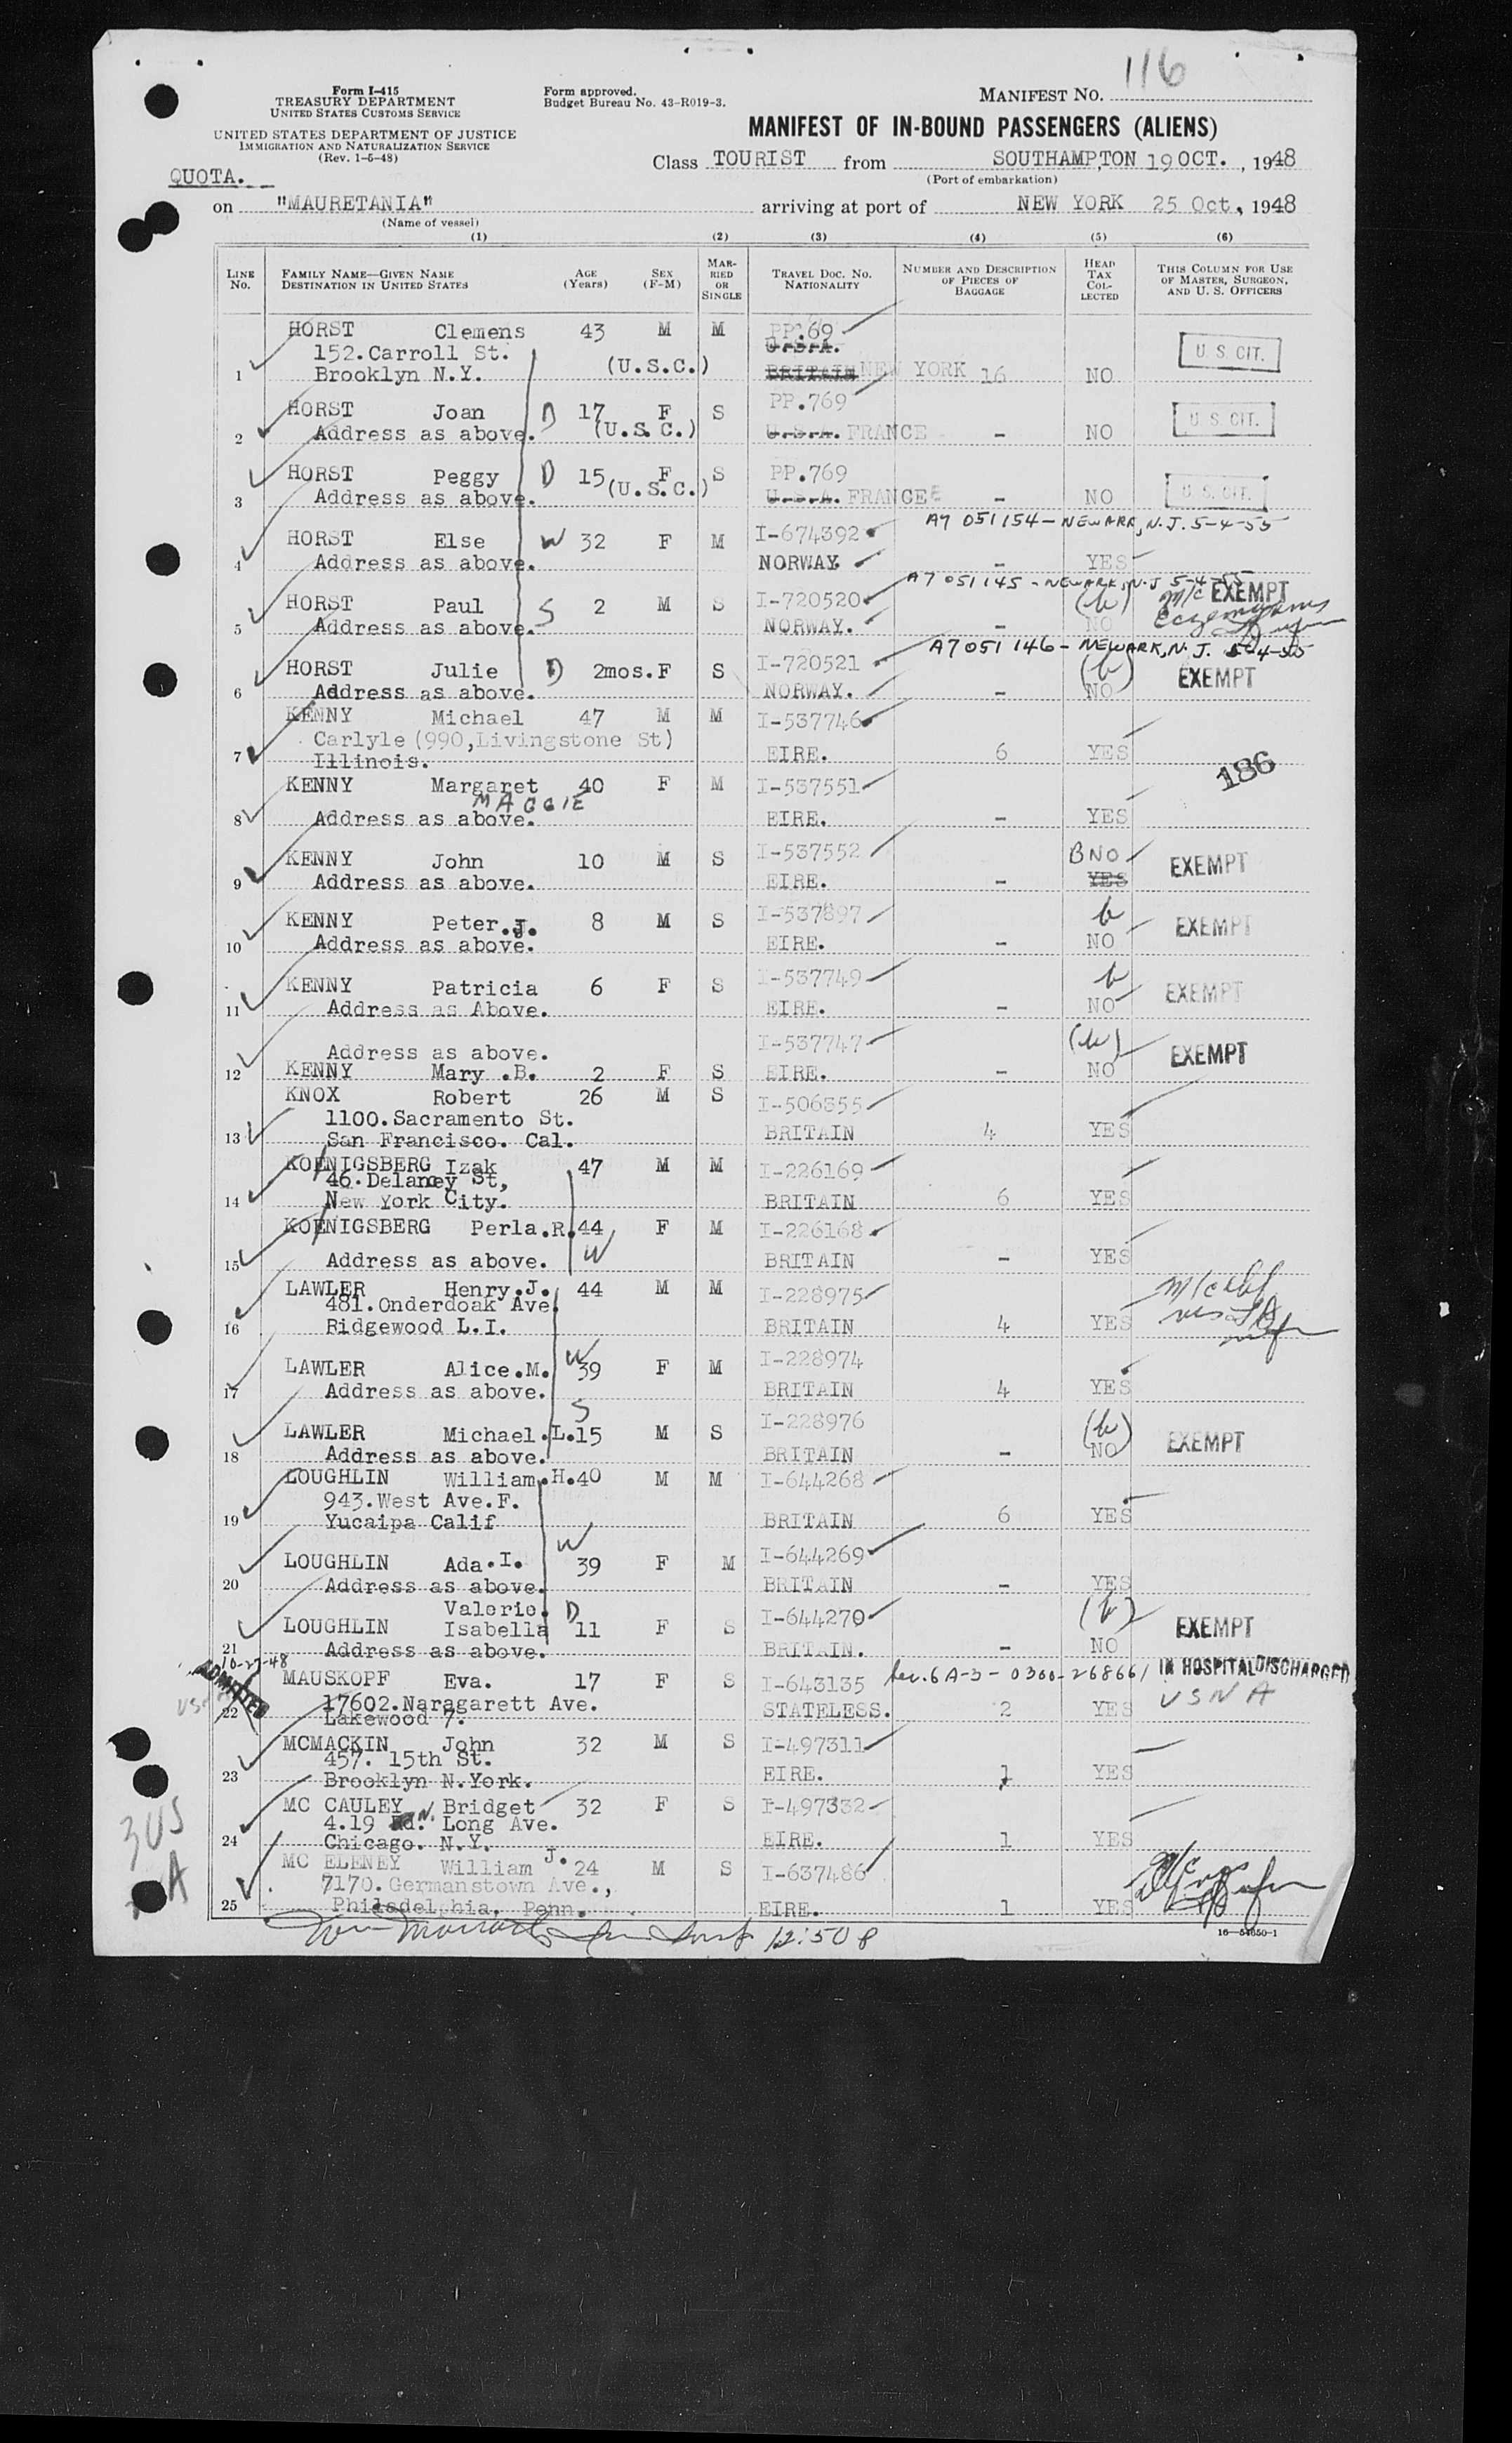 116
Form I-415
TREASURY DEPARTMENT
UNITED STATES CUSTOMS SERVICE
UNITED STATES DEPARTMENT OF JUSTICE
IMMIGRATION AND NATURALIZATION SERVICE
(Rev. 1-5-48)
Form approved.
Budget Bureau No. 43-R019-3.
MANIFEST NO.
MANIFEST OF IN-BOUND PASSENGERS (ALIENS)
Class TOURIST from SOUTHAMPTON 19 OCT., 1948
(Port of embarkation)
QUOTA.
on "MAURETANIA" arriving at port of NEW YORK 25 Oct, 1948
(Name of vessel)
(1) (2) (3) (4) (5) (6)
LINE NO. FAMILY NAME—GIVEN NAME DESTINATION IN UNITED STATES AGE (Years) SEX (F-M) MARRIED OR SINGLE TRAVEL DOC. NO. NATIONALITY NUMBER AND DESCRIPTION OF PIECES OF BAGGAGE HEAD TAX COLLECTED THIS COLUMN FOR USE OF MASTER, SURGEON, AND U. S. OFFICERS
HORST Clemens 43 M M PP.69
152.Carroll St. U.S.A. U. S. CIT.
1 Brooklyn N.Y. (U.S.C.) BRITAIN NEW YORK 16 NO
HORST Joan D 17 F S PP.769 U. S. CIT.
2 Address as above. (U.S.C.) U.S.A. FRANCE - NO
HORST Peggy D 15 F S PP.769
3 Address as above. (U.S.C.) U.S.A. FRANCE - NO U. S. CIT.
A7 051154 - NEWARK, N.J. 5-4-55
HORST Else W 32 F M I-674392
4 Address as above. NORWAY. - YES
A7 051145 - NEWARK, N.J 5-4-55
HORST Paul S 2 M S I-720520 (b) M/C EXEMPT
5 Address as above. NORWAY. - NO
A7 051 146 - NEWARK, N.J. 5-4-55
HORST Julie D 2mos. F S I-720521 (b) EXEMPT
6 Address as above. NORWAY. - NO
KENNY Michael 47 M M I-537746
Carlyle (990,Livingstone St)
7 Illinois. EIRE. 6 YES
186
KENNY Margaret 40 F M I-537551
MAGGIE
8 Address as above. EIRE. - YES
KENNY John 10 M S I-537552 B NO EXEMPT
9 Address as above. EIRE. - YES
KENNY Peter.J. 8 M S I-537897 b EXEMPT
10 Address as above. EIRE. - NO
KENNY Patricia 6 F S I-537749 b EXEMPT
11 Address as Above. EIRE. - NO
Address as above. I-537747 (b) EXEMPT
12 KENNY Mary .B. 2 F S EIRE. - NO
KNOX Robert 26 M S I-506355
1100.Sacramento St.
13 San Francisco. Cal. BRITAIN 4 YES
KOENIGSBERG Izak 47 M M I-226169
46.Delancy St,
14 New York City. BRITAIN 6 YES
KOENIGSBERG Perla.R. 44 F M I-226168
15 Address as above. W BRITAIN - YES
LAWLER Henry.J. 44 M M I-228975
481.Onderdoak Ave.
16 Ridgewood L.I. BRITAIN 4 YES
LAWLER Alice.M. W 39 F M I-228974
17 Address as above. BRITAIN 4 YES
LAWLER Michael.L. S 15 M S I-228976 (b) EXEMPT
18 Address as above. BRITAIN - NO
LOUGHLIN William.H. 40 M M I-644268
943.West Ave.F.
19 Yucaipa Calif BRITAIN 6 YES
LOUGHLIN Ada.I. W 39 F M I-644269
20 Address as above. BRITAIN - YES
Valerie. D
LOUGHLIN Isabella 11 F S I-644270 (b) EXEMPT
21 Address as above. BRITAIN. - NO
10-27-48
ADMITTED
MAUSKOPF Eva. 17 F S I-643135 6 A-3-0300-268661 IN HOSPITAL DISCHARGED
17602.Naragarett Ave. USNA
22 Lakewood 7. STATELESS. 2 YES
MCMACKIN John 32 M S I-497311
457. 15th St.
23 Brooklyn N.York. EIRE. 1 YES
MC CAULEY Bridget 32 F S I-497332
4.19 N. Long Ave.
24 Chicago. N.Y. EIRE. 1 YES
3US
A
MC ELENEY William J. 24 M S I-637486
7170.Germanstown Ave.,
25 Philadelphia, Penn. EIRE. 1 YES
12:50 P
16—54650-1